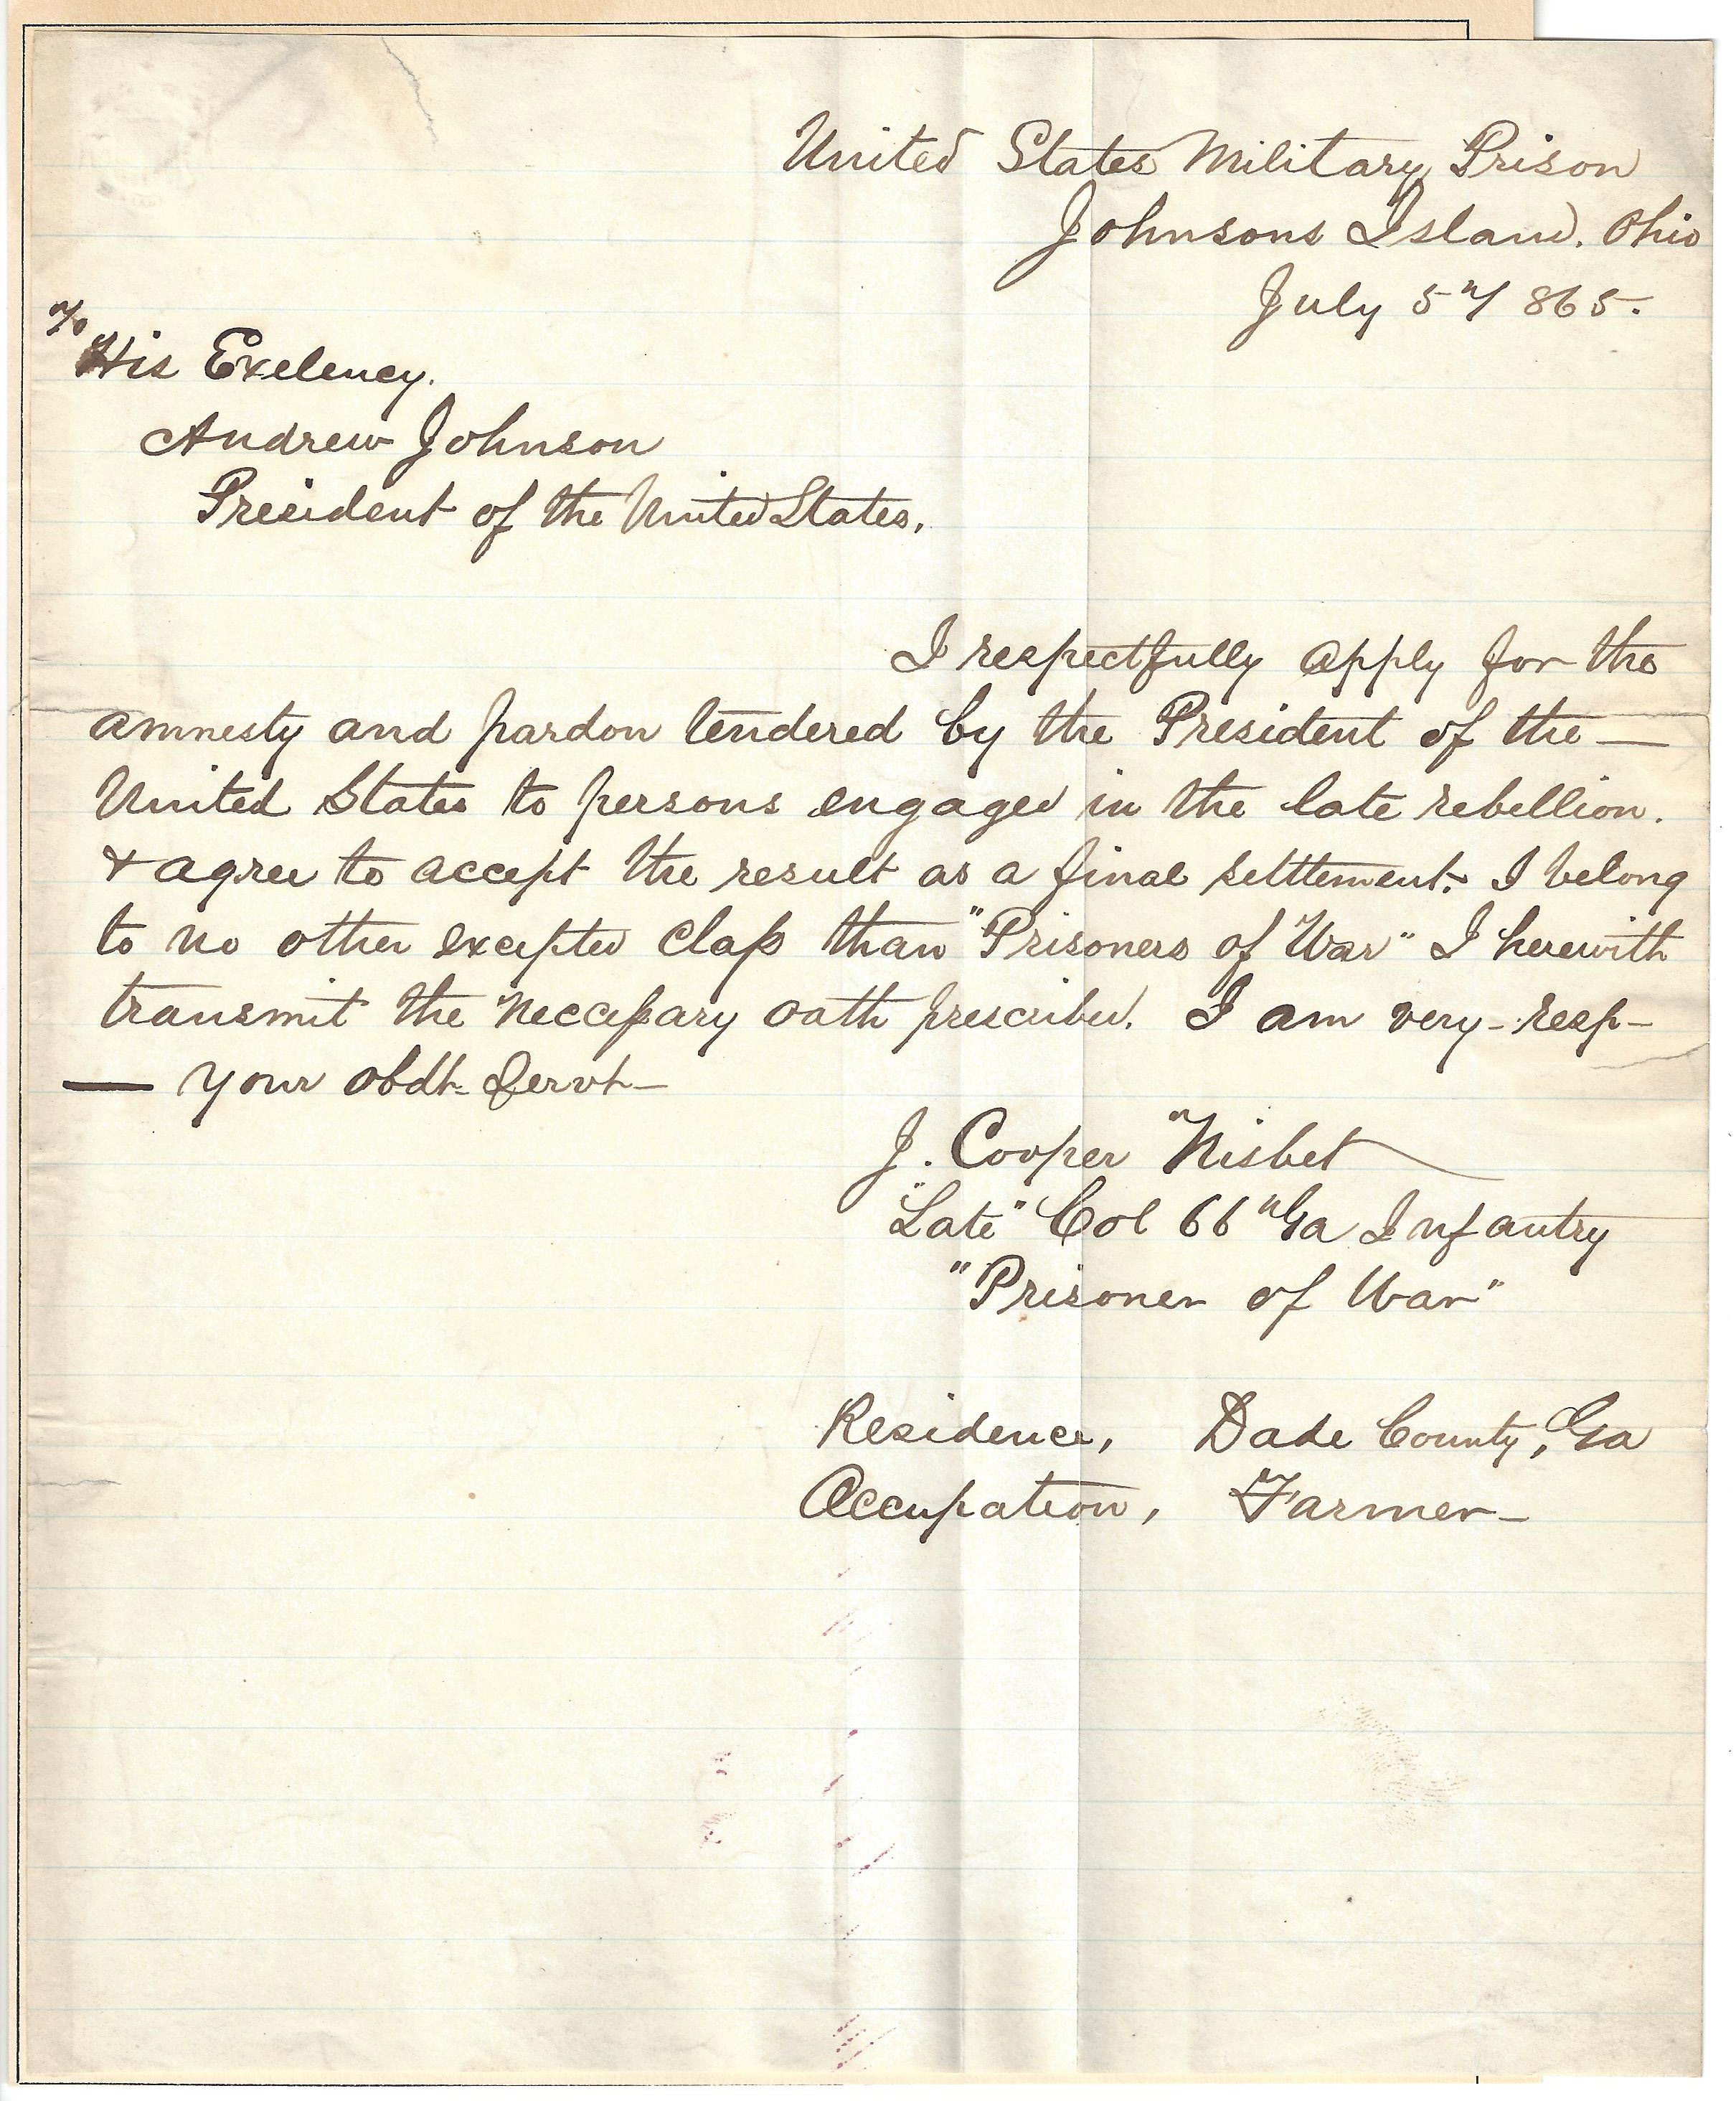 United States Military Prison
Johnsons Island. Ohio
July 5th 1865.
To
His Exelency.
Andrew Johnson
President of the United States.
I respectfully apply for the
amnesty and pardon tendered by the President of the —
United States to persons engaged in the late rebellion.
& agree to accept the result as a final settlement. I belong
to no other excepted class than "Prisoners of War" I herewith
transmit the neccessary oath prescribed. I am very - resp -
— your obdt - Servt —
J. Cooper Nisbet
"Late" Col 66th Ga Infantry
"Prisoner of War"
Residence, Dade County, Ga
Occupation, Farmer —